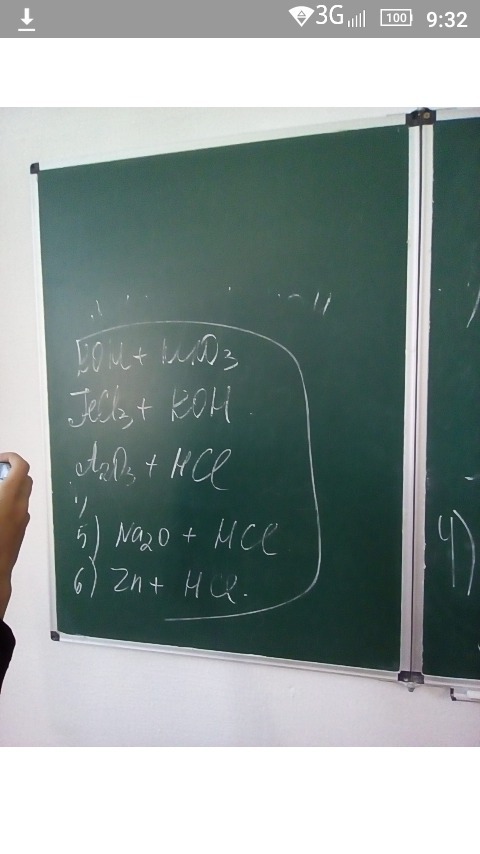 3G 100 9:32
KOH + HNO3
FeCl3 + KOH
Al2O3 + HCl
5) Na2O + HCl
6) Zn + HCl.
4)